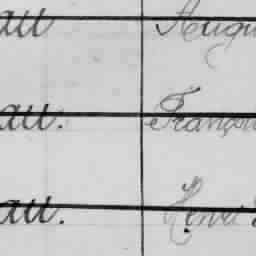 au Augu
au. Franç
au. Henri